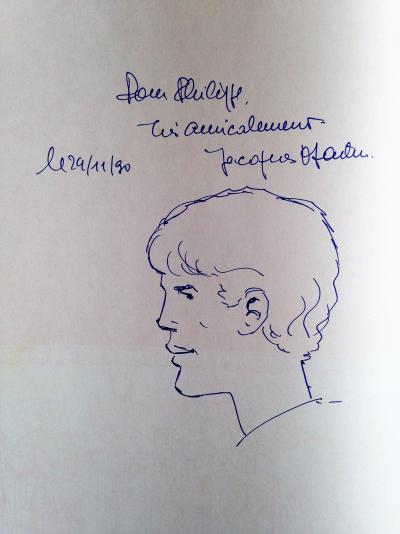 Pour Philippe,
Très amicalement
le 29/11/90 Jacques Martin.